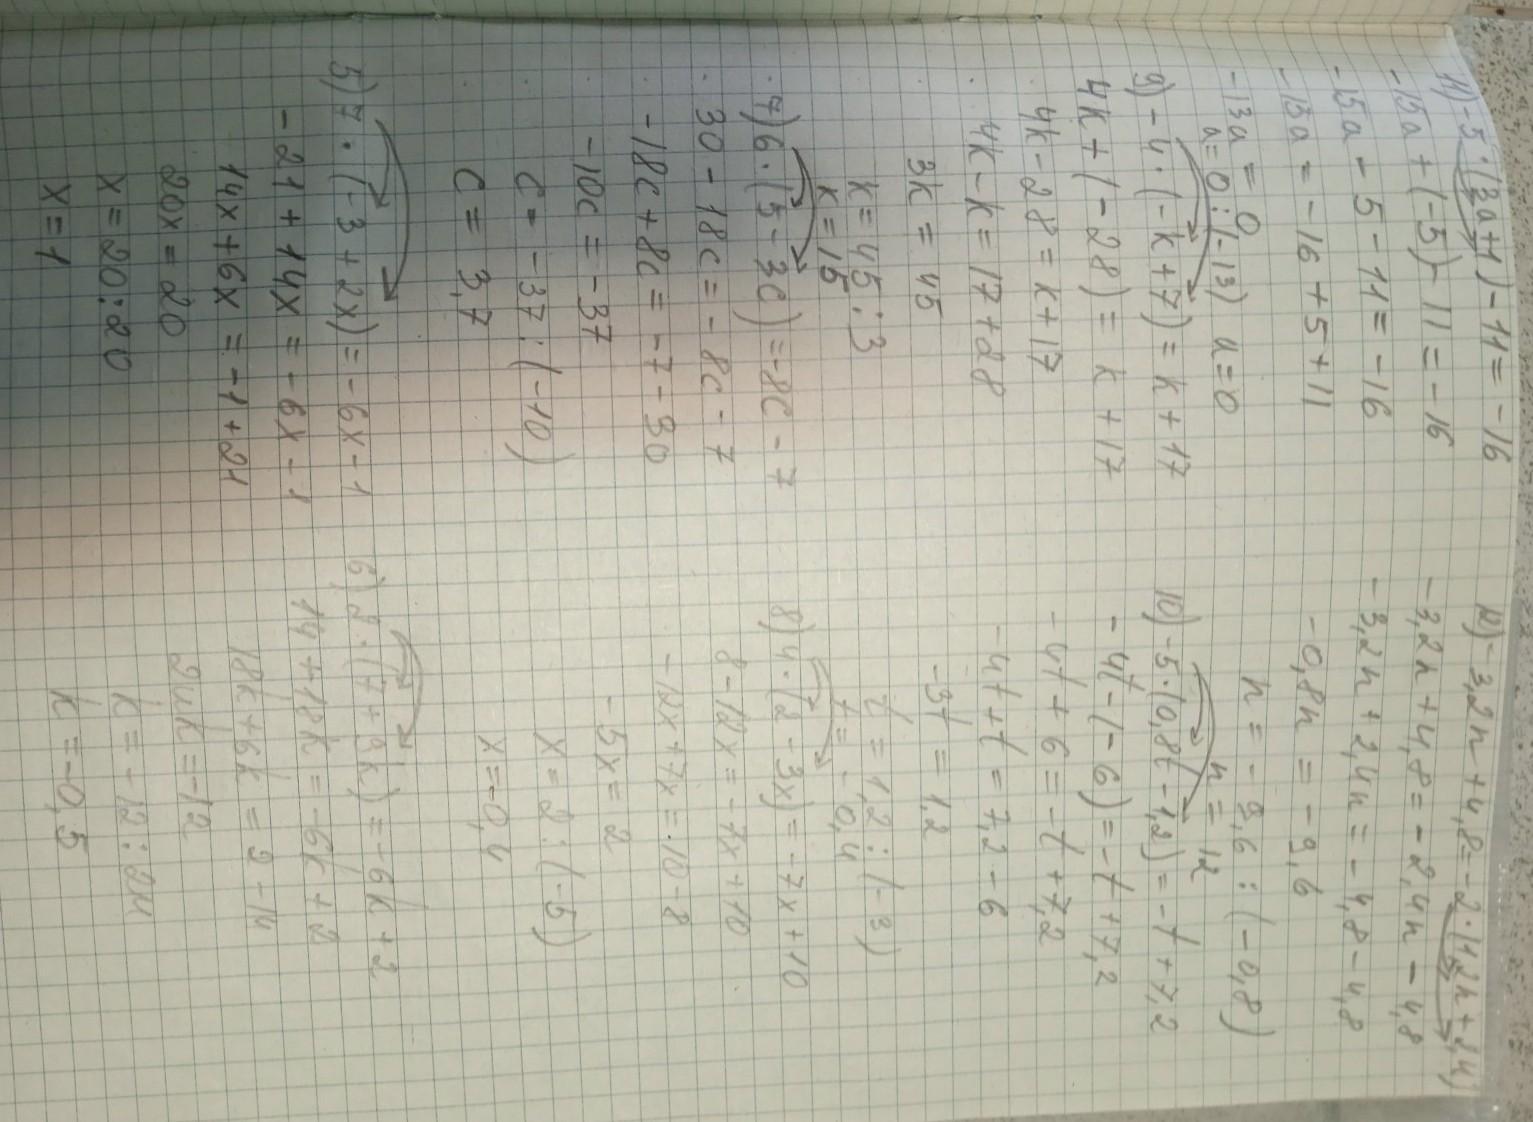 11) -5·(3a+1)-11=-16
-15a+(-5)-11=-16
-15a-5-11=-16
-13a=-16+5+11
-13a=0
a=0:(-13) a=0
9) -4·(-k+7)=k+17
4k+(-28)=k+17
4k-28=k+17
4k-k=17+28
3k=45
k=45:3
k=15
7) 6·(5-3c)=-8c-7
30-18c=-8c-7
-18c+8c=-7-30
-10c=-37
c=-37:(-10)
c=3,7
5) 7·(-3+2x)=-6x-1
-21+14x=-6x-1
14x+6x=-1+21
20x=20
x=20:20
x=1
12) -3,2n+4,8=-2·(1,2n+2,4)
-3,2n+4,8=-2,4n-4,8
-3,2n+2,4n=-4,8-4,8
-0,8n=-9,6
n=-9,6:(-0,8)
n=12
10) -5·(0,8t-1,2)=-t+7,2
-4t-(-6)=-t+7,2
-4t+6=-t+7,2
-4t+t=7,2-6
-3t=1,2
t=1,2:(-3)
t=-0,4
8) 4·(2-3x)=-7x+10
8-12x=-7x+10
-12x+7x=10-8
-5x=2
x=2:(-5)
x=-0,4
6) 2·(7+9k)=-6k+2
14+18k=-6k+2
18k+6k=2-14
24k=-12
k=-12:24
k=-0,5